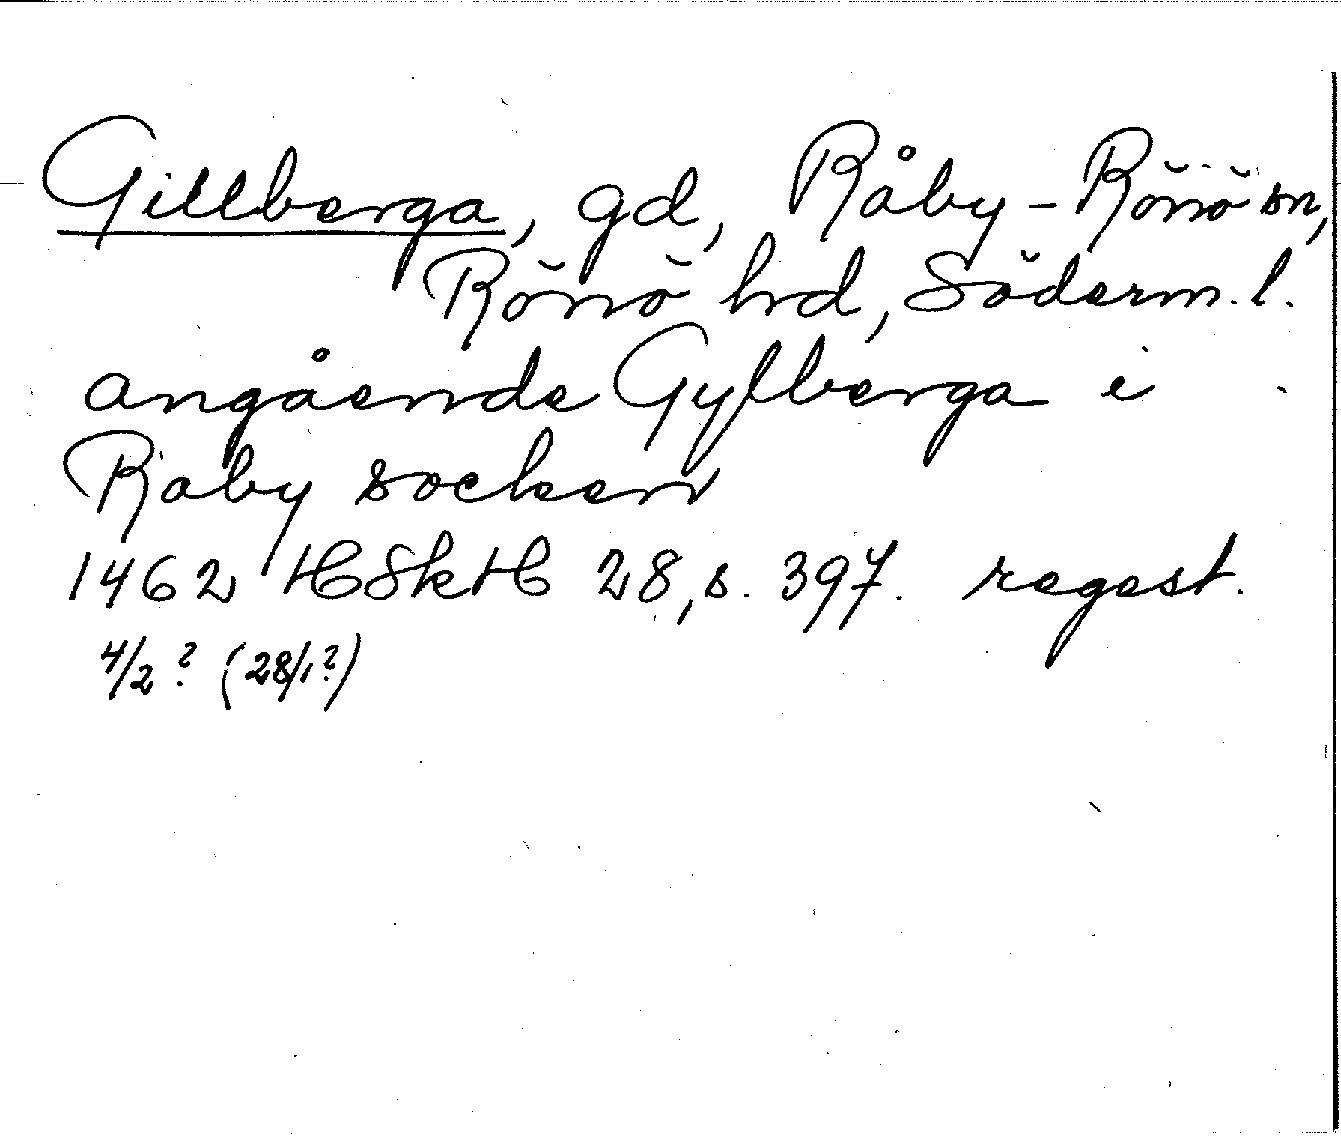 Gillberga, gd, Råby-Rönö sn,
Rönö hd, Söderm. l.
angående Gylberga i
Raby socken
1462 HSkH 28, s. 397. regest.
4/2? (28/1?)